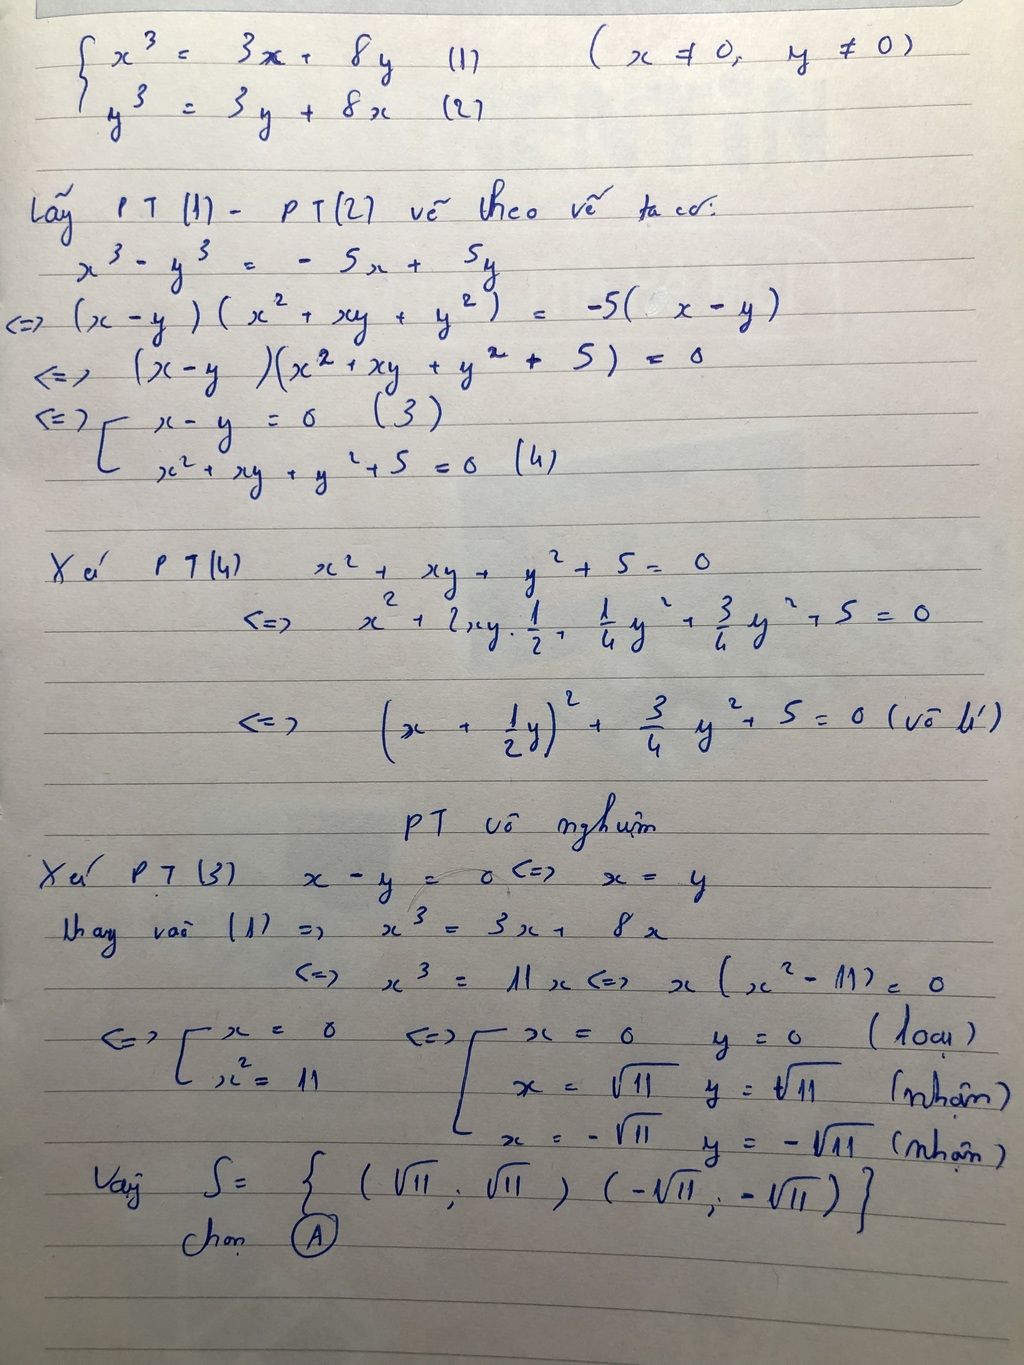 { x³ = 3x + 8y (1) ( x ≠ 0, y ≠ 0)
y³ = 3y + 8x (2)
Lấy PT (1) - PT (2) vế theo vế ta có:
x³ - y³ = - 5x + 5y
<=> (x - y) (x² + xy + y²) = -5( x - y)
<=> (x - y )(x² + xy + y² + 5) = 0
<=> [ x - y = 0 (3)
x² + xy + y² + 5 = 0 (4)
Xét PT(4) x² + xy + y² + 5 = 0
<=> x² + 2xy . 1/2 + 1/4 y² + 3/4 y² + 5 = 0
<=> (x + 1/2 y)² + 3/4 y² + 5 = 0 (vô lí)
PT vô nghiệm
Xét PT (3) x - y = 0 <=> x = y
thay vào (1) => x³ = 3x + 8x
<=> x³ = 11x <=> x (x² - 11) = 0
<=> [ x = 0 <=> [ x = 0 y = 0 (loại)
x² = 11 x = √11 y = √11 (nhận)
x = -√11 y = -√11 (nhận)
Vậy S = { (√11 ; √11 ) (-√11 ; -√11) }
chọn A